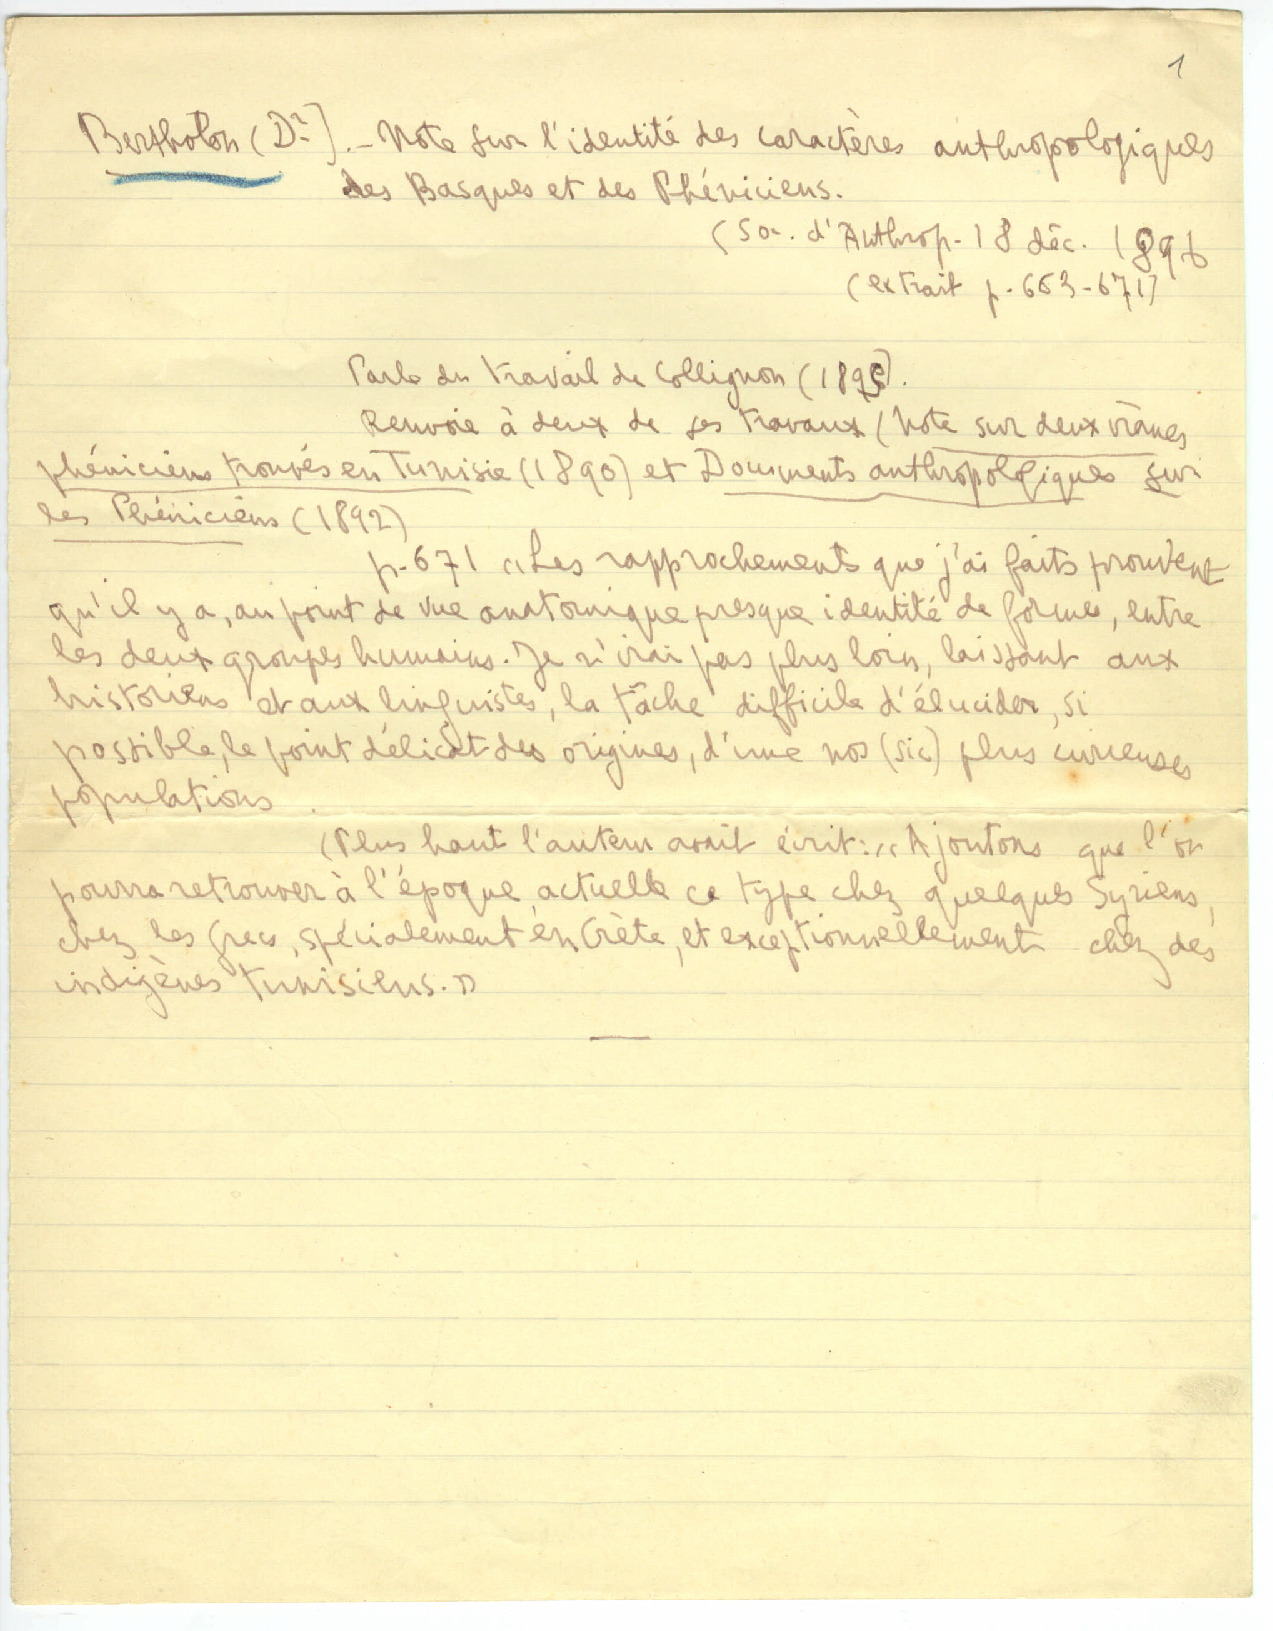 1
Bertholon (Dr). - Note sur l'identité des caractères anthropologiques
des Basques et des Phéniciens.
(Soc. d'Anthrop. 18 déc. 1896
(extrait p. 663-671)
Parle du travail de Collignon (1895).
Renvoie à deux de ses travaux (Note sur deux crânes
phéniciens trouvés en Tunisie (1890) et Documents anthropologiques sur
les Phéniciens (1892)
p. 671 « Les rapprochements que j'ai faits prouvent
qu'il y a, au point de vue anatomique presque identité de formes, entre
les deux groupes humains. Je n'irai pas plus loin, laissant aux
historiens et aux linguistes, la tâche difficile d'élucider, si
possible, le point délicat des origines, d'une nos (sic) plus curieuses
populations.
(Plus haut l'auteur avait écrit : « Ajoutons que l'on
pourra retrouver à l'époque actuelle ce type chez quelques Syriens,
chez les Grecs, spécialement en Crète, et exceptionnellement chez des
indigènes tunisiens. »